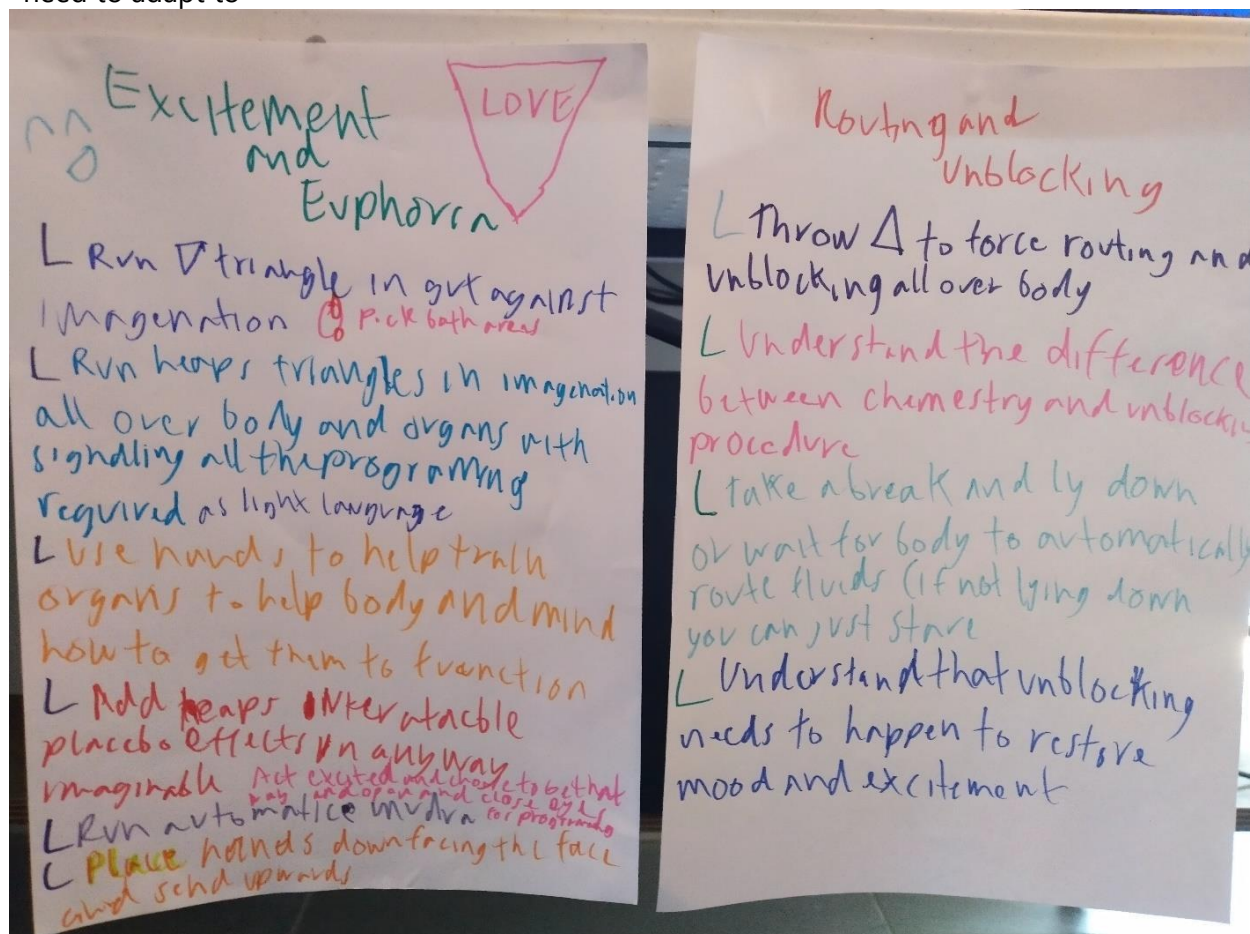 need to adapt to
Excitement
and
Euphoria
LOVE
Run ∇ triangle in gut against
imagenation Pick both areas
Run heaps triangles in imagenation
all over body and organs with
signalling all the programing
required as light language
Use hands to help train
organs to help body and mind
how to get them to function
Add heaps
placebo effects in anyway
imaginable Act excited and chose to be that
way and open and close eyes
Run automatice mudra for programing
Place hands down facing the face
and send upwards
Routing and
Unblocking
Throw Δ to force routing and
unblocking all over body
Understand the difference
between chemestry and
procedure
take a break and ly down
or wait for body to automatically
route fluids (if not lying down
you can just stare
Understand that unblocking
needs to happen to restore
mood and excitement